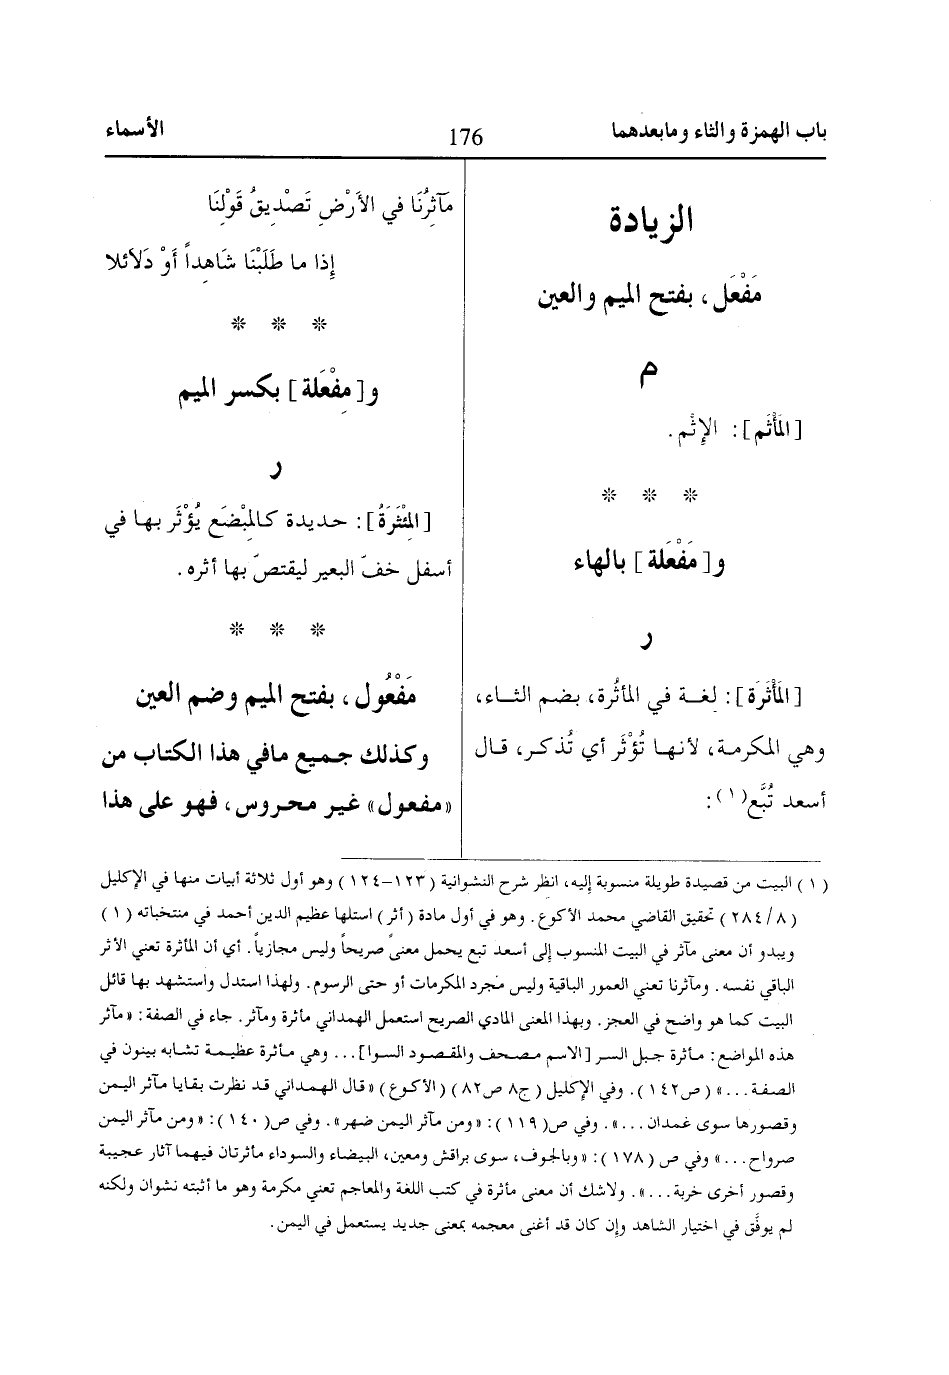 باب الهمزة والثاء ومابعدهما
176
الأسماء
الزيادة
مَفْعَل، بفتح الميم والعين
م
[المَأْثَم]: الإِثْم.
* * *
و[مَفْعَلة] بالهاء
ر
[المَأْثَرَة]: لغــة في المأثُرة، بضم الثــاء،
وهي المكرمة، لأنهـا تُؤْثَر أي تُذكـر، قـال
أسعد تُبَّع(١):
مَآثِرُنَا في الأَرْضِ تَصْدِيقُ قَوْلِنَا
إِذا ما طَلَبْنَا شَاهِداً أَوْ دَلاَئلا
* * *
و[مِفْعَلة] بكسر الميم
ر
[المِئْثَرَةُ]: حديدة كالمِبْضَع يُؤْثَر بها في
أسفل خفّ البعير ليقتصّ بها أثره.
* * *
مَفْعُول، بفتح الميم وضم العين
وكذلك جميع مافي هذا الكتاب من
«مفعول» غير محروس، فهو على هذا
(١) البيت من قصيدة طويلة منسوبة إليه، انظر شرح النشوانية (١٢٣-١٢٤) وهو أول ثلاثة أبيات منها في الإكليل
(٢٨٤/٨) تحقيق القاضي محمد الأكوع. وهو في أول مادة (أثر) استلها عظيم الدين أحمد في منتخباته (١)
ويبدو أن معنى مآثر في البيت المنسوب إلى أسعد تبع يحمل معنىً صريحاً وليس مجازياً. أي أن المأثرة تعني الأثر
الباقي نفسه. ومآثرنا تعني العمور الباقية وليس مجرد المكرمات أو حتى الرسوم. ولهذا استدل واستشهد بها قائل
البيت كما هو واضح في العجز. وبهذا المعنى المادي الصريح استعمل الهمداني مأثرة ومآثر. جاء في الصفة: «مآثر
هذه المواضع: مأثرة جبل السر [الاسم مصحف والمقصود السوا]... وهي مأثرة عظيمة تشابه بينون في
الصفة...» (ص١٤٢). وفي الإكليل (ج٨ ص٨٢) (الأكوع) «قال الهمداني قد نظرت بقايا مآثر اليمن
وقصورها سوى غمدان...». وفي ص(١١٩): «ومن مآثر اليمن ضهر». وفي ص(١٤٠): «ومن مآثر اليمن
صرواح...» وفي ص (١٧٨): «وبالجوف، سوى براقش ومعين، البيضاء والسوداء مأثرتان فيهما آثار عجيبة
وقصور أخرى خربة...». ولاشك أن معنى مأثرة في كتب اللغة والمعاجم تعني مكرمة وهو ما أثبته نشوان ولكنه
لم يوفَّق في اختيار الشاهد وإن كان قد أغنى معجمه بمعنى جديد يستعمل في اليمن.